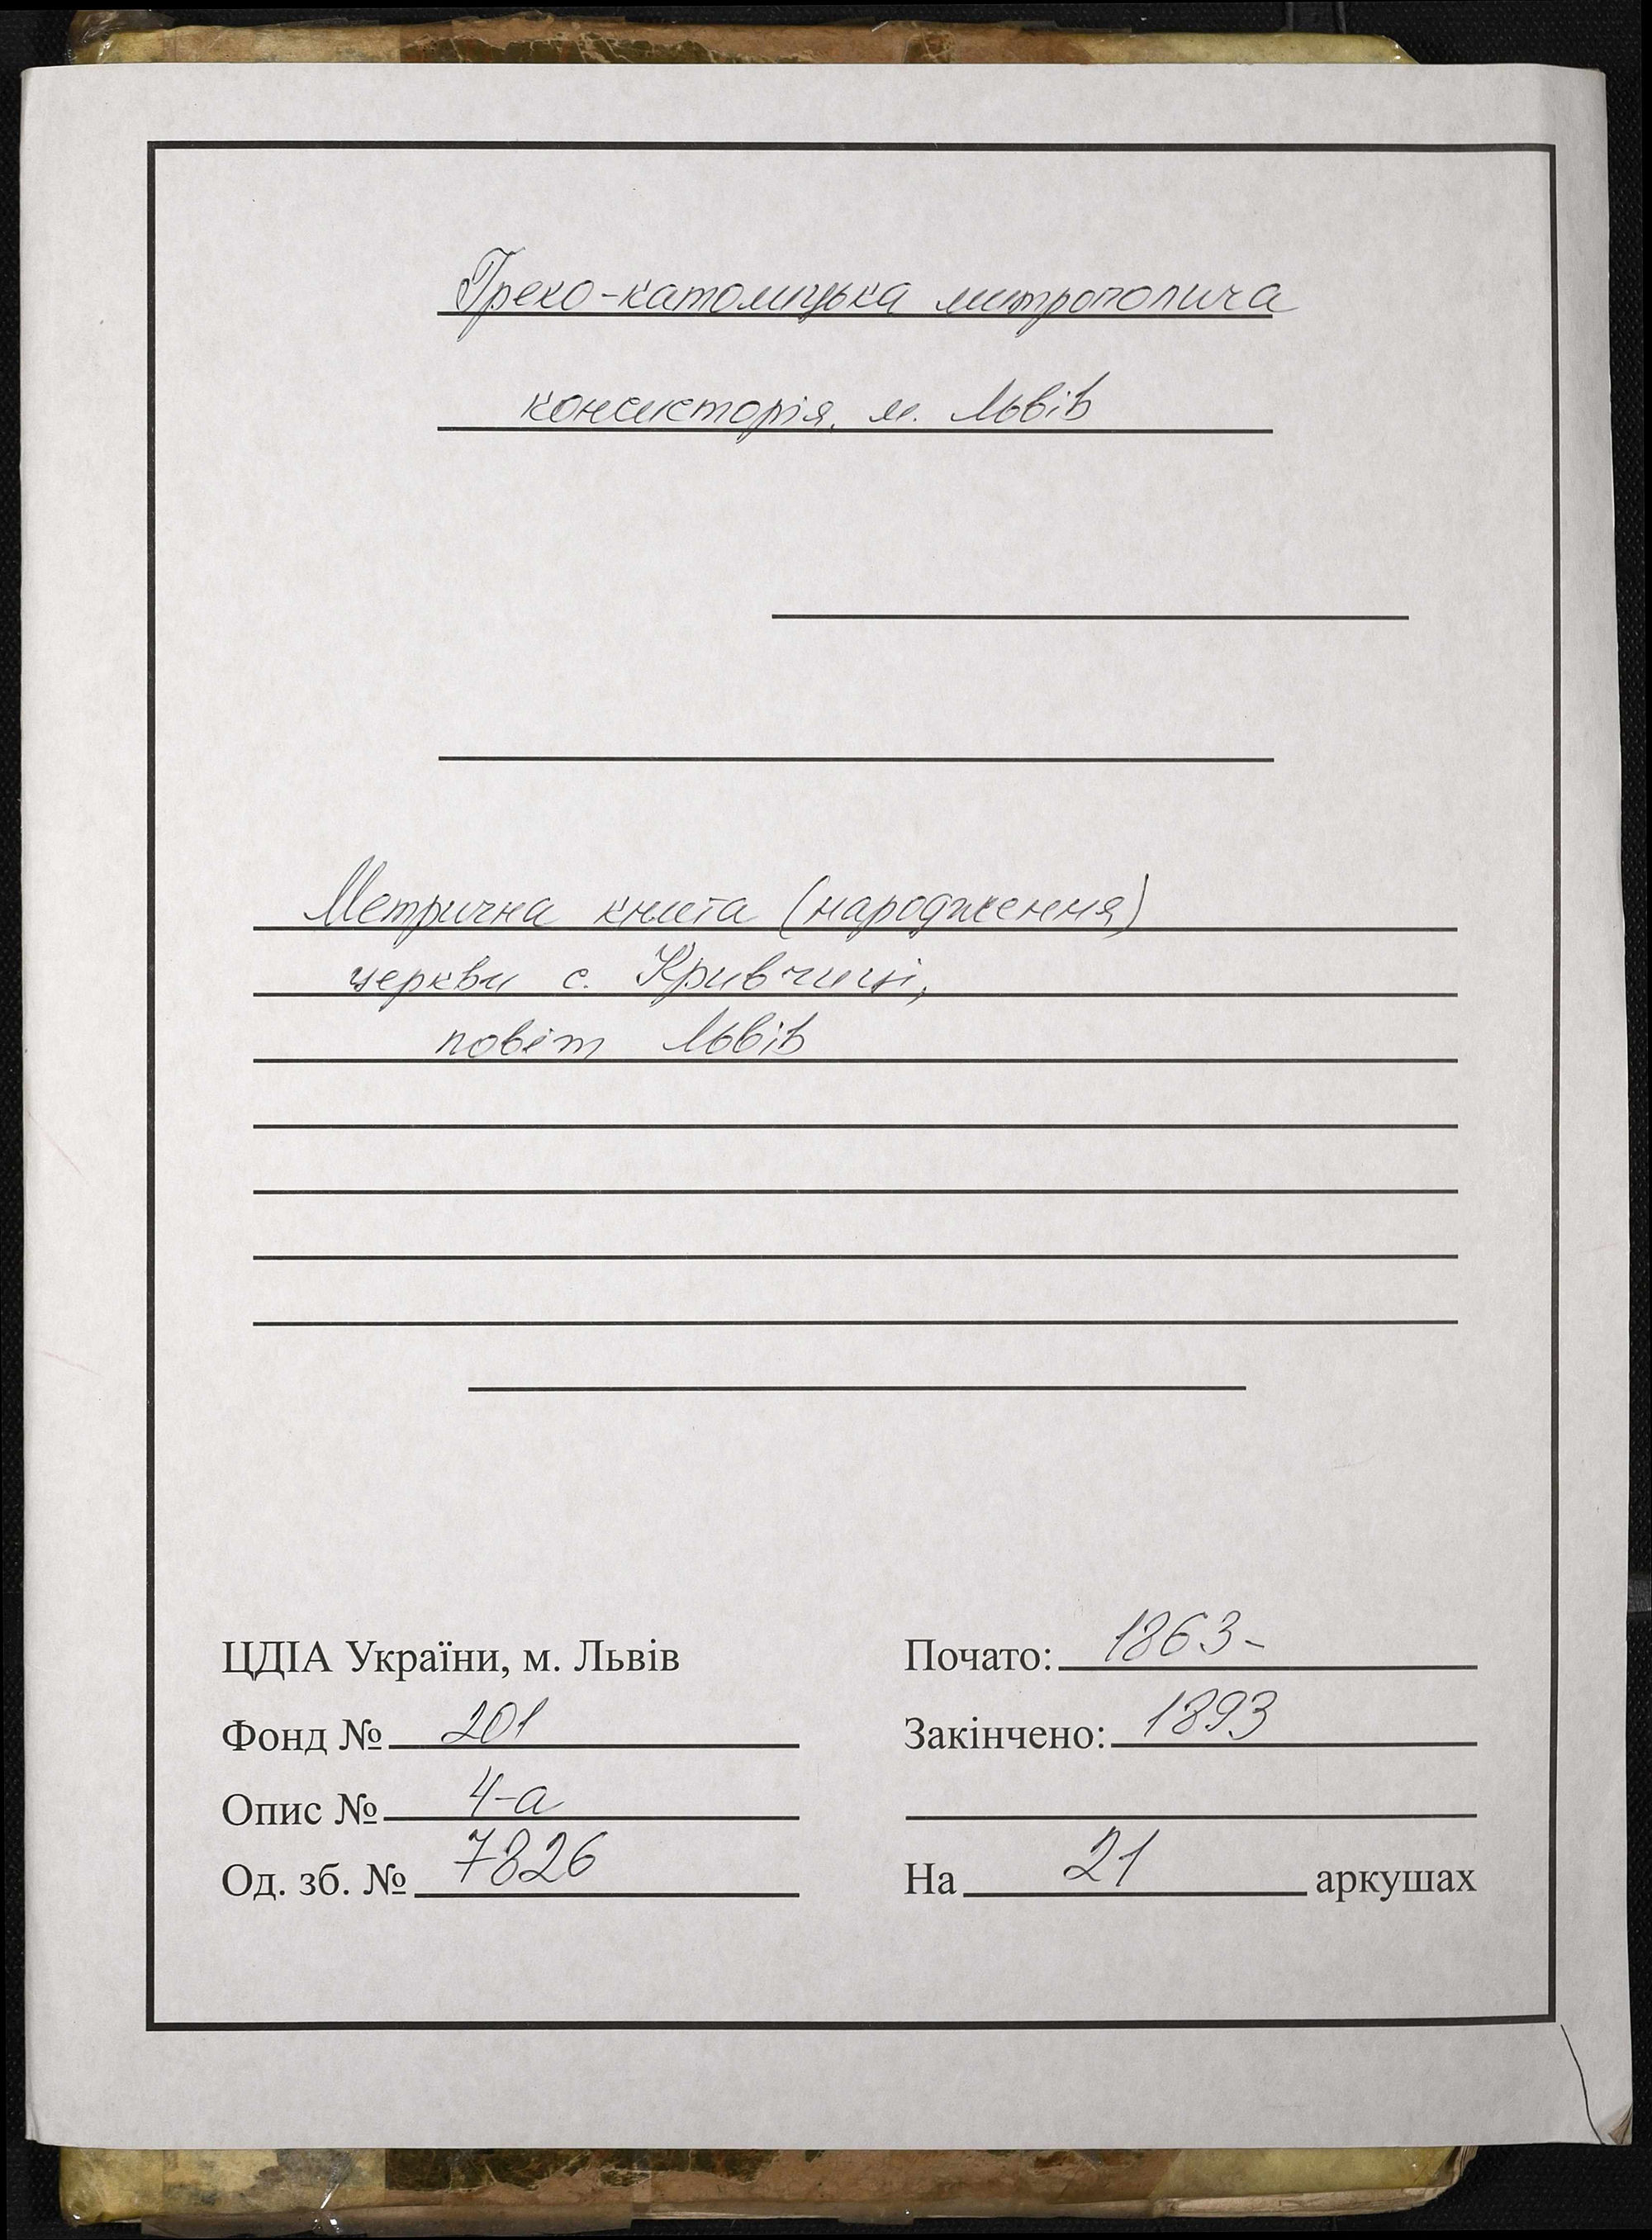 Греко-католицька митрополича
консисторія, м. Львів
Метрична книга (народження)
церкви с. Кривчиці,
повіт Львів
ЦДІА України, м. Львів
Фонд № 201
Опис № 4-а
Од. зб. № 7826
Почато: 1863-
Закінчено: 1893
На 21 аркушах